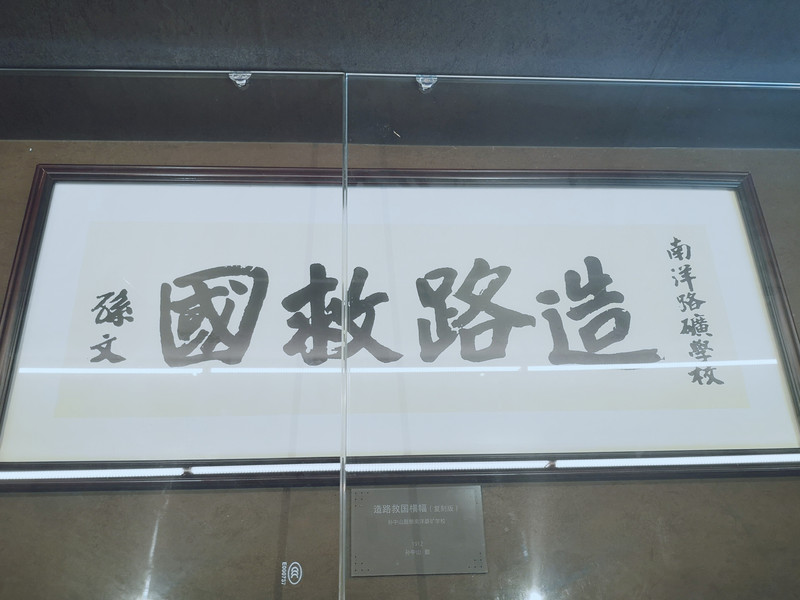 南洋路礦學校
造路救國
孫文
造路救国横幅（复制品）